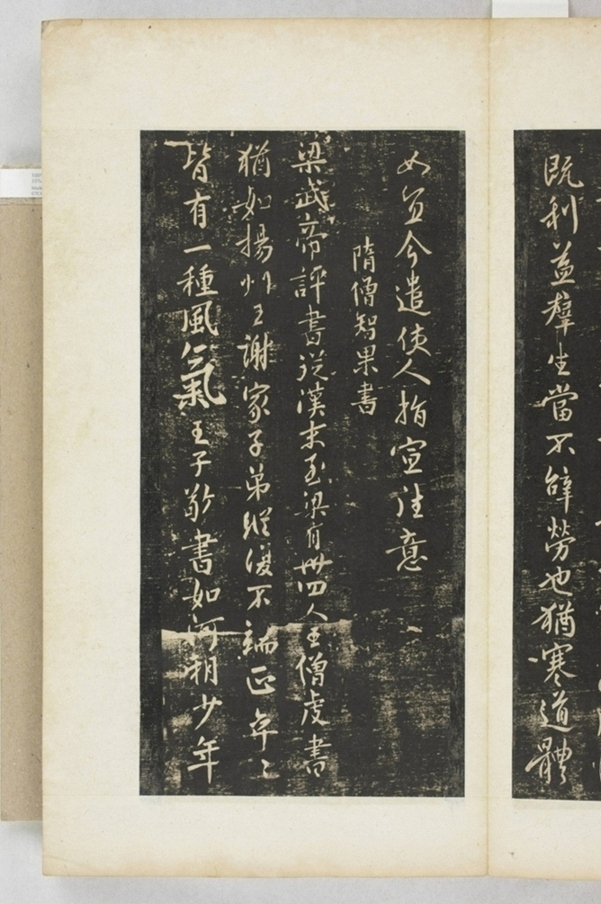 既利益羣生當不辞勞也猶寒道體
如宜今遣使人指宣往意
隋僧智果書
梁武帝評書從漢末至梁有卌四人王僧虔書
猶如揚州王謝家子弟縱復不端正奕〻
皆有一種風氣王子敬書如河朔少年